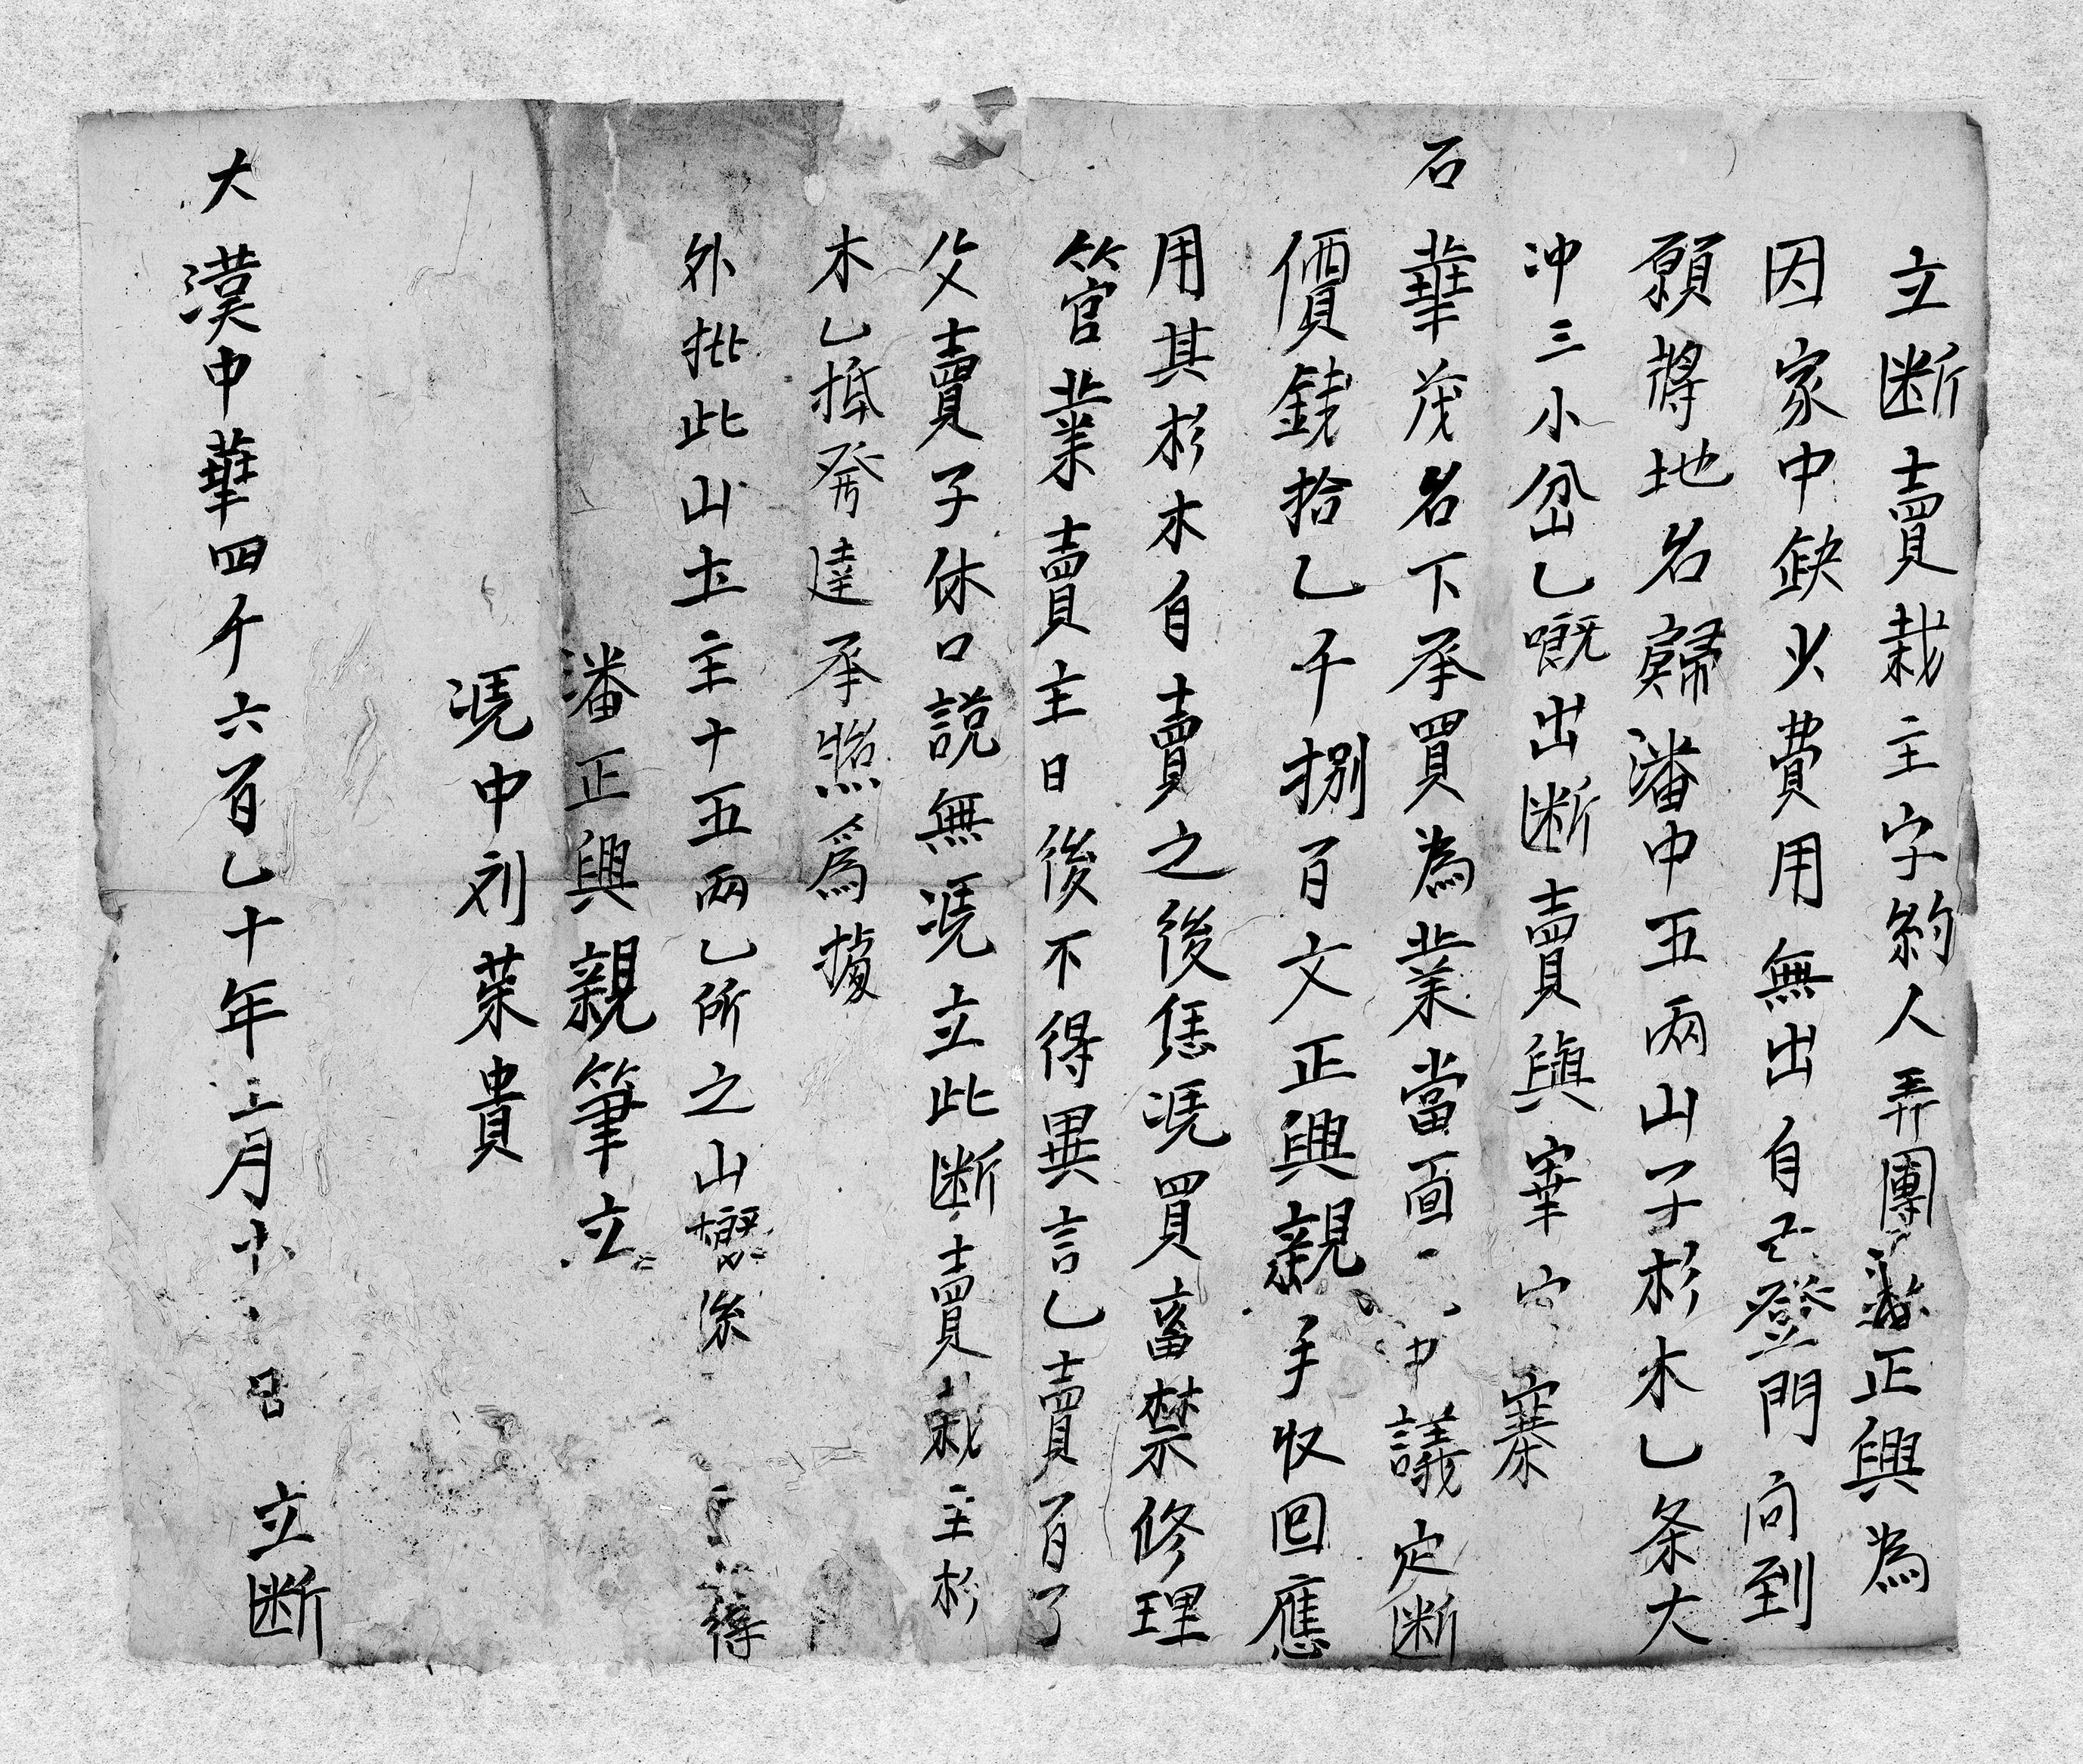 立断賣栽主字約人弄團潘正興為
因家中缺少費用無出自己登門向到
願將地名歸潘中五兩山子杉木乙条大
冲三小岔乙嘅出断賣與寨
石
華茂名下承買為業當面中議定断
價錢拾乙千捌百文正興親手收回應
用其杉木自賣之後恁凴買畜禁修理
管業賣主日後不得異言乙賣百了
父賣子休口説無凴立此断賣栽主杉
木乙抵發達承照為據
外批此山土主十五兩乙所之山概係得
潘正興親筆立
凴中刘荣貴
大漢中華四千六百乙十年三月日立断